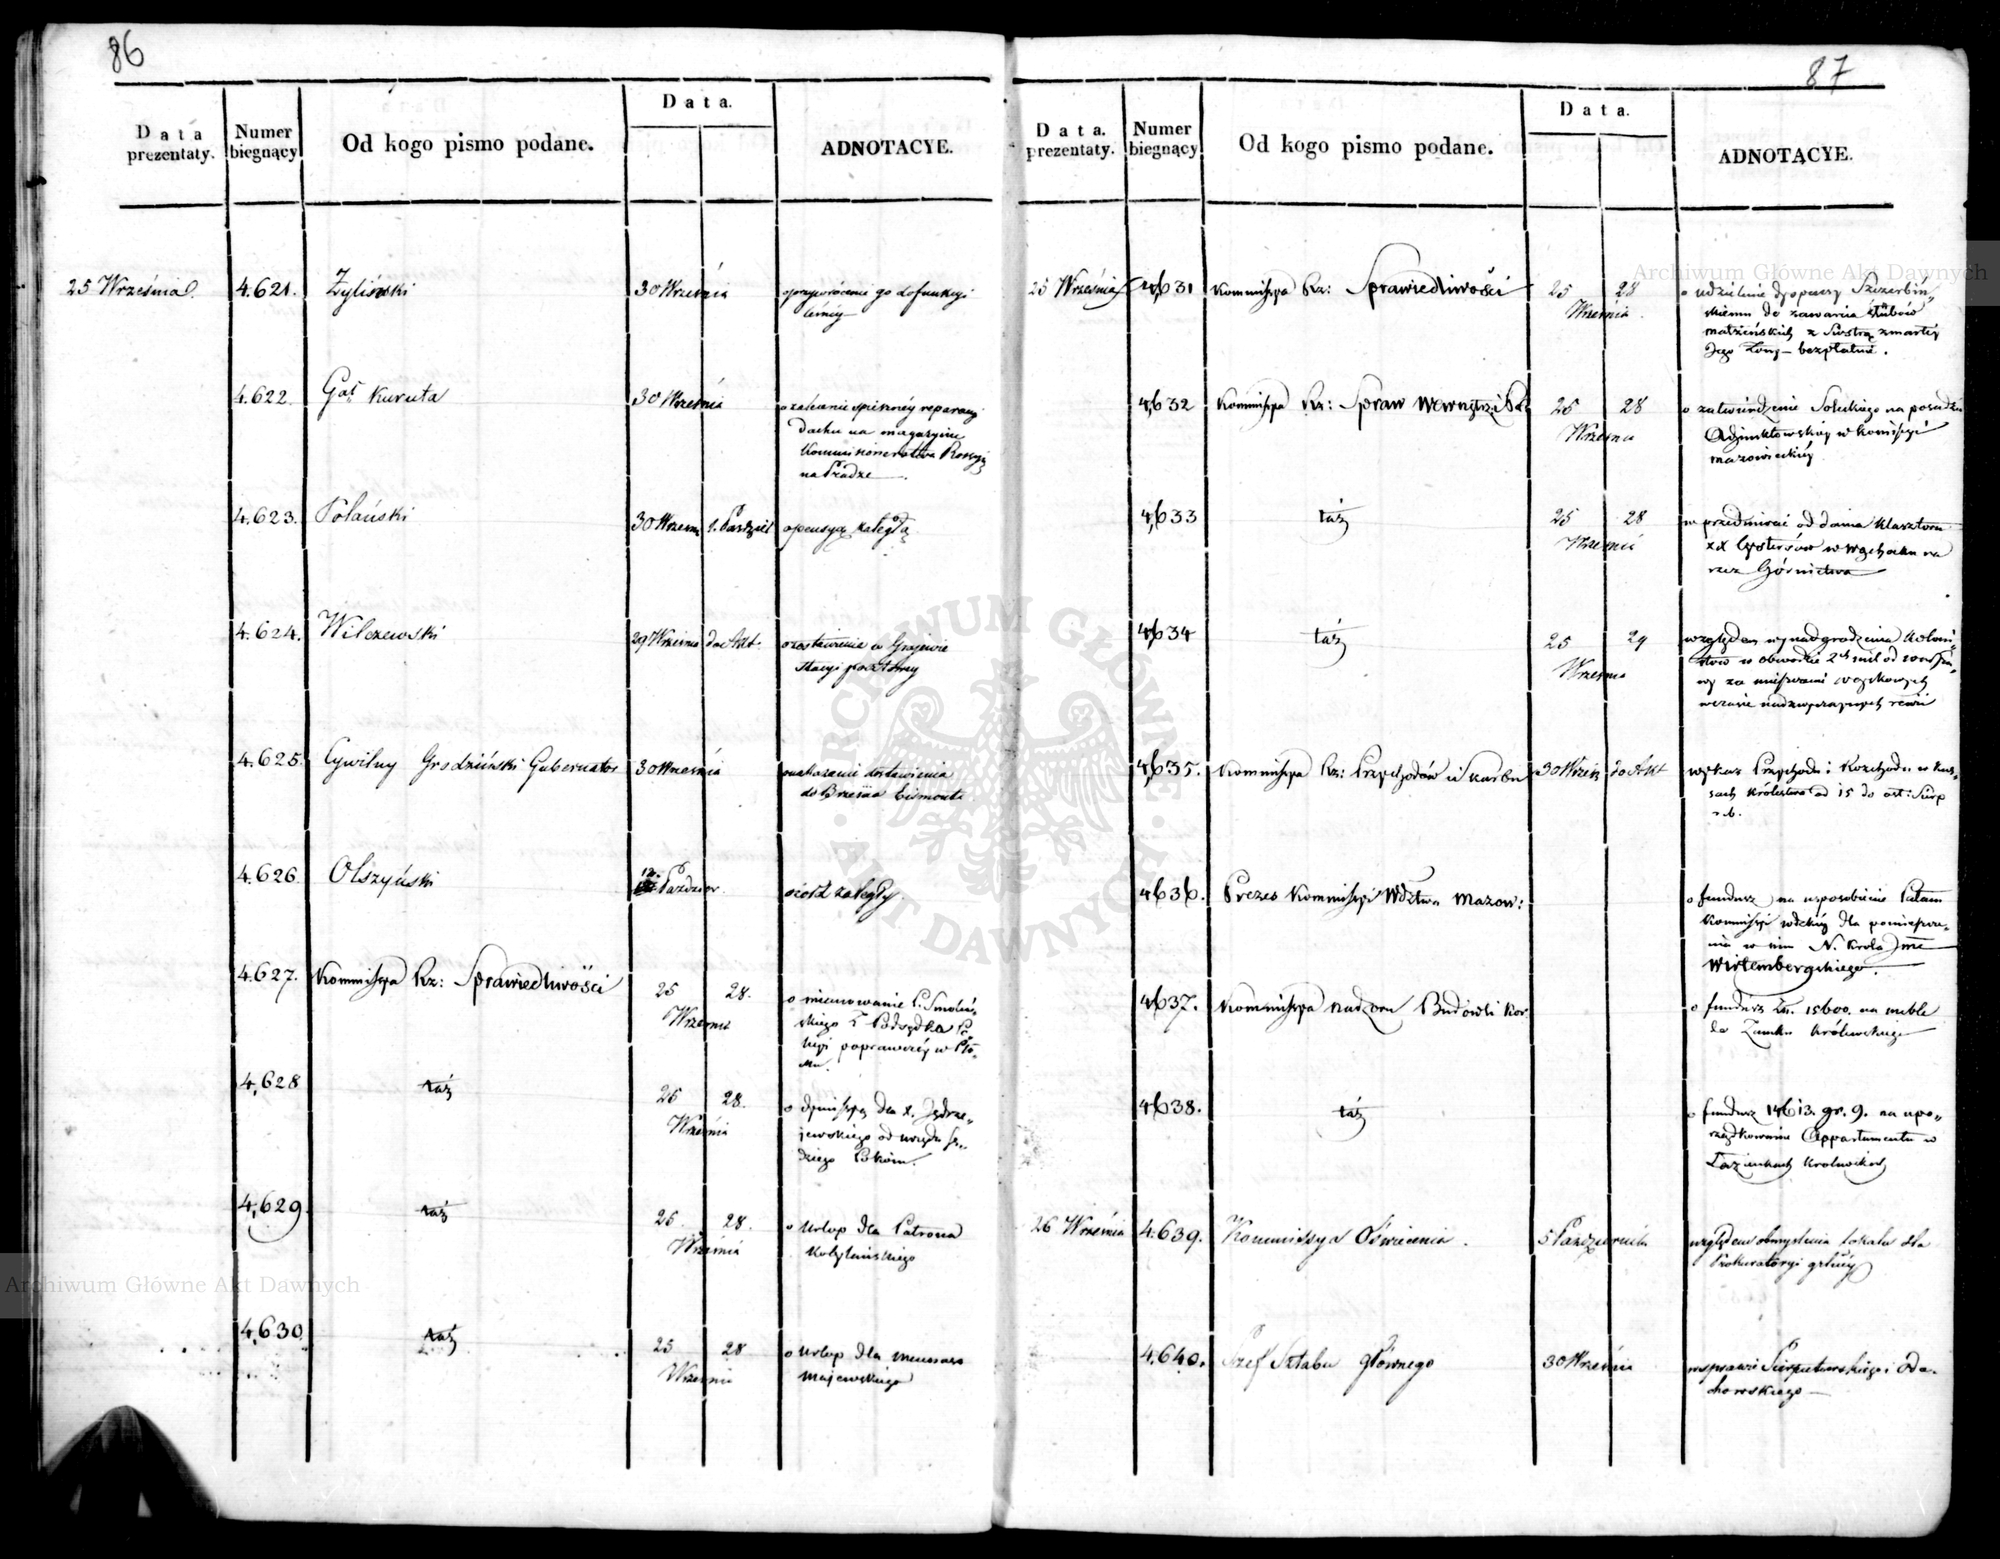 86
Data prezentaty.
Numer biegnący
Od kogo pismo podane.
Data.
ADNOTACYE.
25 Września
4.621.
Żyliński
30 Września
o przywrócenie go do funkcyi
leśnéy
4.622.
Gał Kuruta
30 Września
o zalecenie spiesznéy reparacyi
dachu na magazynie
Kommissioneratwa Rossyy
na Pradze
4.623.
Polański
30 Wrześn
1. Paździer
o pensyą zaległą
4.624.
Wilczewski
29 Września
do Akt.
o zostawienie w Grajewie
Stacyi pocztowy
4.625.
Cywilny Grodziński Gubernator
30 Września
o nakazanie dostawienia
do Brześcia Eismonta
4.626.
Olszyński
12. Paździer.
zaległy.
4.627.
Kommissya Rz: Sprawiedliwości
25
28.
Września
o mianowanie P. Smoleń-
skiego Podsędka
poprawczéy w
4,628
táż
25
28.
Września
o dymissyą dla X. Jędrze-
jewskiego od urzędu Sę-
dziego Pokóiu.
4,629
táż
25.
28.
Września
o urlop dla Patrona
Kobylińskiego
4,630
táż
25
28
Września
o urlop dla
Majewskiego
87
Data. prezentaty.
Numer biegnący
Od kogo pismo podane.
Data.
ADNOTACYE.
25 Września
4,631
Kommissya Rz: Sprawiedliwości
25
28
Września
o udzielenie dyspensy Szczerbiń-
skiemu do zawarcia ślubów
małżeńskich z Siostrą zmarłéy
Jego Żony – bezpłatnie.
4,632
Kommissya Rz: Spraw Wewnętrz:
25
28
Września
o zatwierdzenie na posadzie
Adjunktowskiéy w Komissyi
mazowieckiéy
4,633
táż
25
28
Września
w przedmiocie od dania Klasztoru
XX Cystersów w Wąchocku na
rzecz Górnictwa
4,634
táż
25
29
Września
względem wynadgrodzenia Koloni-
stów w obwodzie 2ch mil od
4,635.
Kommissya Rz: Przychodów i Skarbu
30 Wrześ
do Akt
wykaz Przychodu i Rozchodu w Kas-
sach Królestwa od 15 do ost: Sierp
r. b.
4,636.
Prezes Kommissyi Wdztwa Mazow:
o fundusz na usposobienie Pałacu
Kommissyi wdzkiéy dla pomieszcze-
nia w nim N. Króla Jmci
Wirtembergskiego.
4637.
Kommissya nadzoru Budowli Kor.
o fundusz Zł. 15600. na meble
do Zamku Królewskiego
4638.
táż
o fundusz 14613. gr. 9. na upo-
rządkowanie Appartamentu w
Łazienkach Królewskich
26 Września
4.639.
Kommissya Oświecenia.
5 Października
względem obmyślenia Lokalu dla
Prokuratoryi głnéy
4.640.
Szef Sztabu głównego
30 Września
w sprawie
Archiwum Główne Akt Dawnych
ARCHIWUM GŁÓWNE AKT DAWNYCH
Archiwum Główne Akt Dawnych